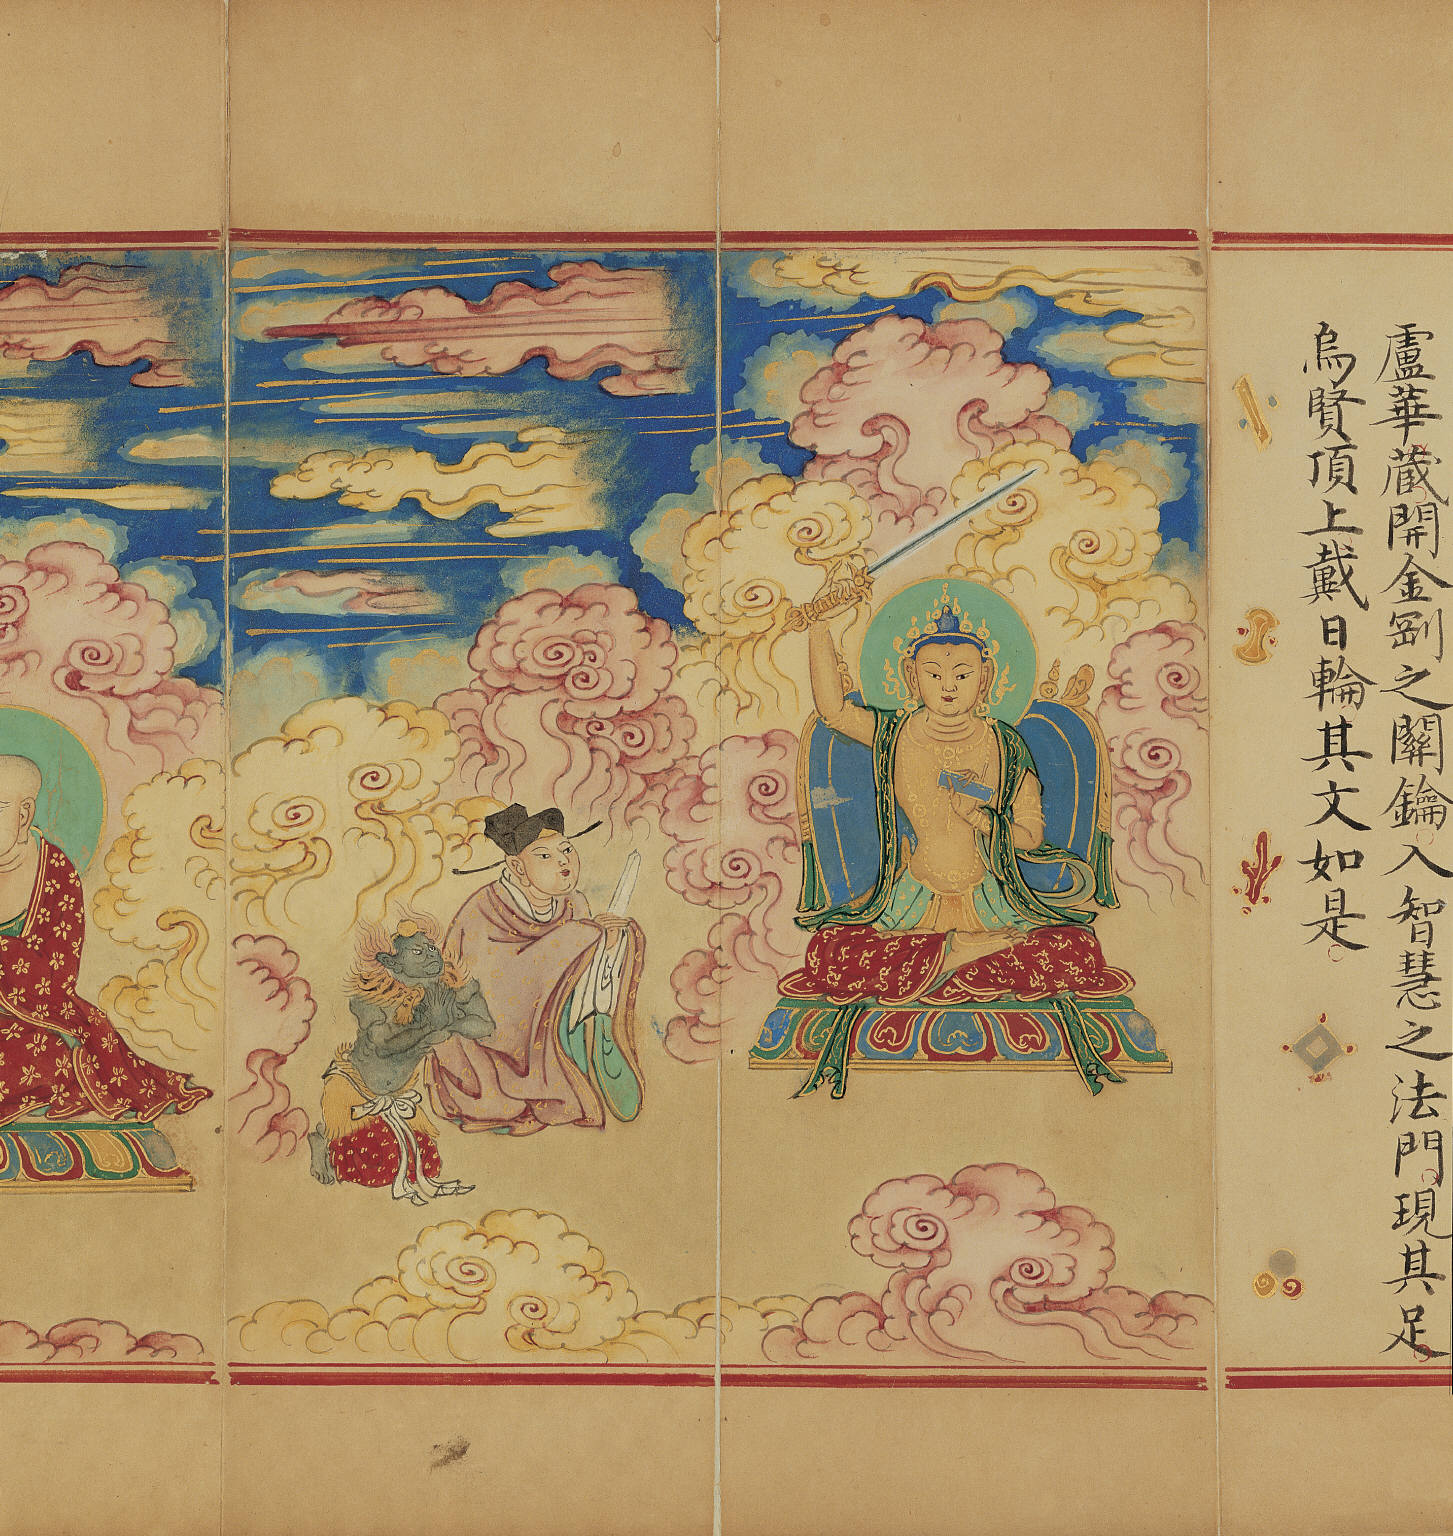 盧華藏開金剛之關鑰入智慧之法門現其足
烏賢頂上戴日輪其文如是